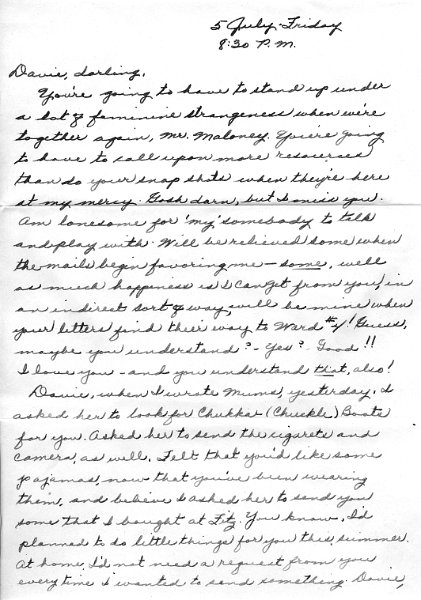 5 July-Friday
8:30 P.M.
Davie, darling,
You're going to have to stand up under
a lot of feminine strangeness when we're
together again, Mr. Maloney. You're going
to have to call upon more resources
than do your snap shots when they're here
at my mercy. Gosh darn, but I miss you.
Am lonesome for 'my' somebody to talk
and play with. Will be relieved some when
the mails begin favoring me - some, well
as much happiness as I can get from you, in
an indirect sort of way, will be mine when
your letters find their way to Ward #4! Guess,
maybe you understand? - Yes? Good!!
I love you - and you understand that, also!
Davie, when I wrote Mums, yesterday, I
asked her to look for Chukka-(Chuckle) Boots
for you. Asked her to send the cigarets and
camera, as well. Felt that you'd like some
pajamas, now that you've been wearing
them, and believe I asked her to send you
some that I bought at Fitz. You know, I'd
planned to do little things for you this summer.
At home, I'd not need a request from you
every time I wanted to send something. Davie,